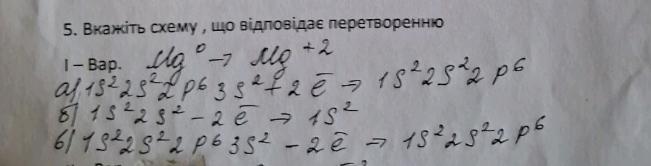 5. Вкажіть схему , що відповідає перетворенню
І – Вар. Mg⁰ → Mg⁺²
а) 1s²2s²2p⁶3s² + 2ē → 1s²2s²2p⁶
б) 1s²2s² - 2ē → 1s²
в) 1s²2s²2p⁶3s² - 2ē → 1s²2s²2p⁶